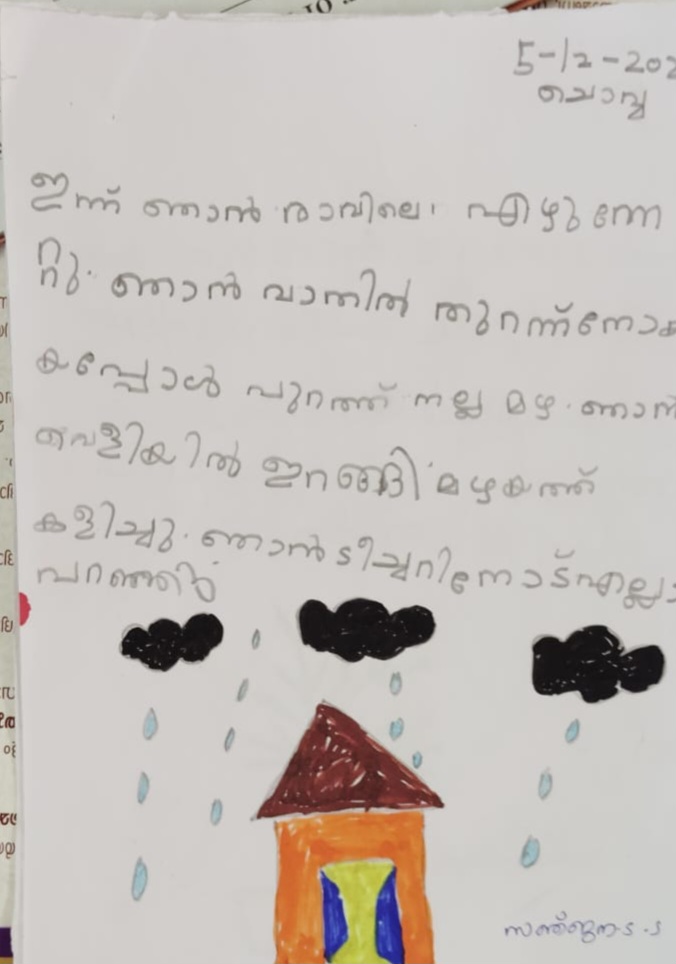 5-12-202
ചൊവ്വ
ഇന്ന് ഞാൻ രാവിലെ എഴുന്നേ
റ്റു. ഞാൻ വാതിൽ തുറന്ന്നോക
കപ്പോൾ പുറത്ത് നല്ല മഴ. ഞാൻ
വെളിയിൽ ഇറങ്ങി മഴയത്ത്
കളിച്ചു. ഞാൻ ടീച്ചറിനോട് എല്ലാ
പറഞ്ഞു
സഞ്ജന.s.s